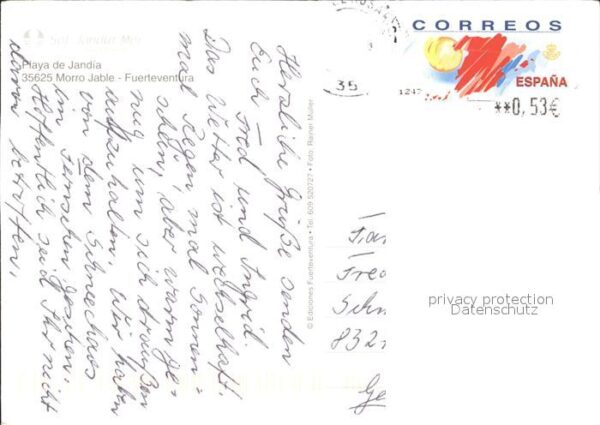 Sol Jandia Mar
Playa de Jandía
35625 Morro Jable - Fuerteventura
Herzliche Grüße senden
Euch — Fred und Ingrid.
Das Wetter ist wechselhaft,
mal Regen, mal Sonnen-
schein, aber warm ge-
nug um sich draußen
aufzuhalten. Wir haben
von dem Schneechaos
im Fernsehen gesehen.
Hoffentlich seid Ihr nicht
davon betroffen.
© Ediciones Fuerteventura • Tel. 609 520727 • Foto: Rainer Müller
35
1247
CORREOS
ESPAÑA
**0,53€
Fam
Fred
Sch
832
Ge
privacy protection
Datenschutz